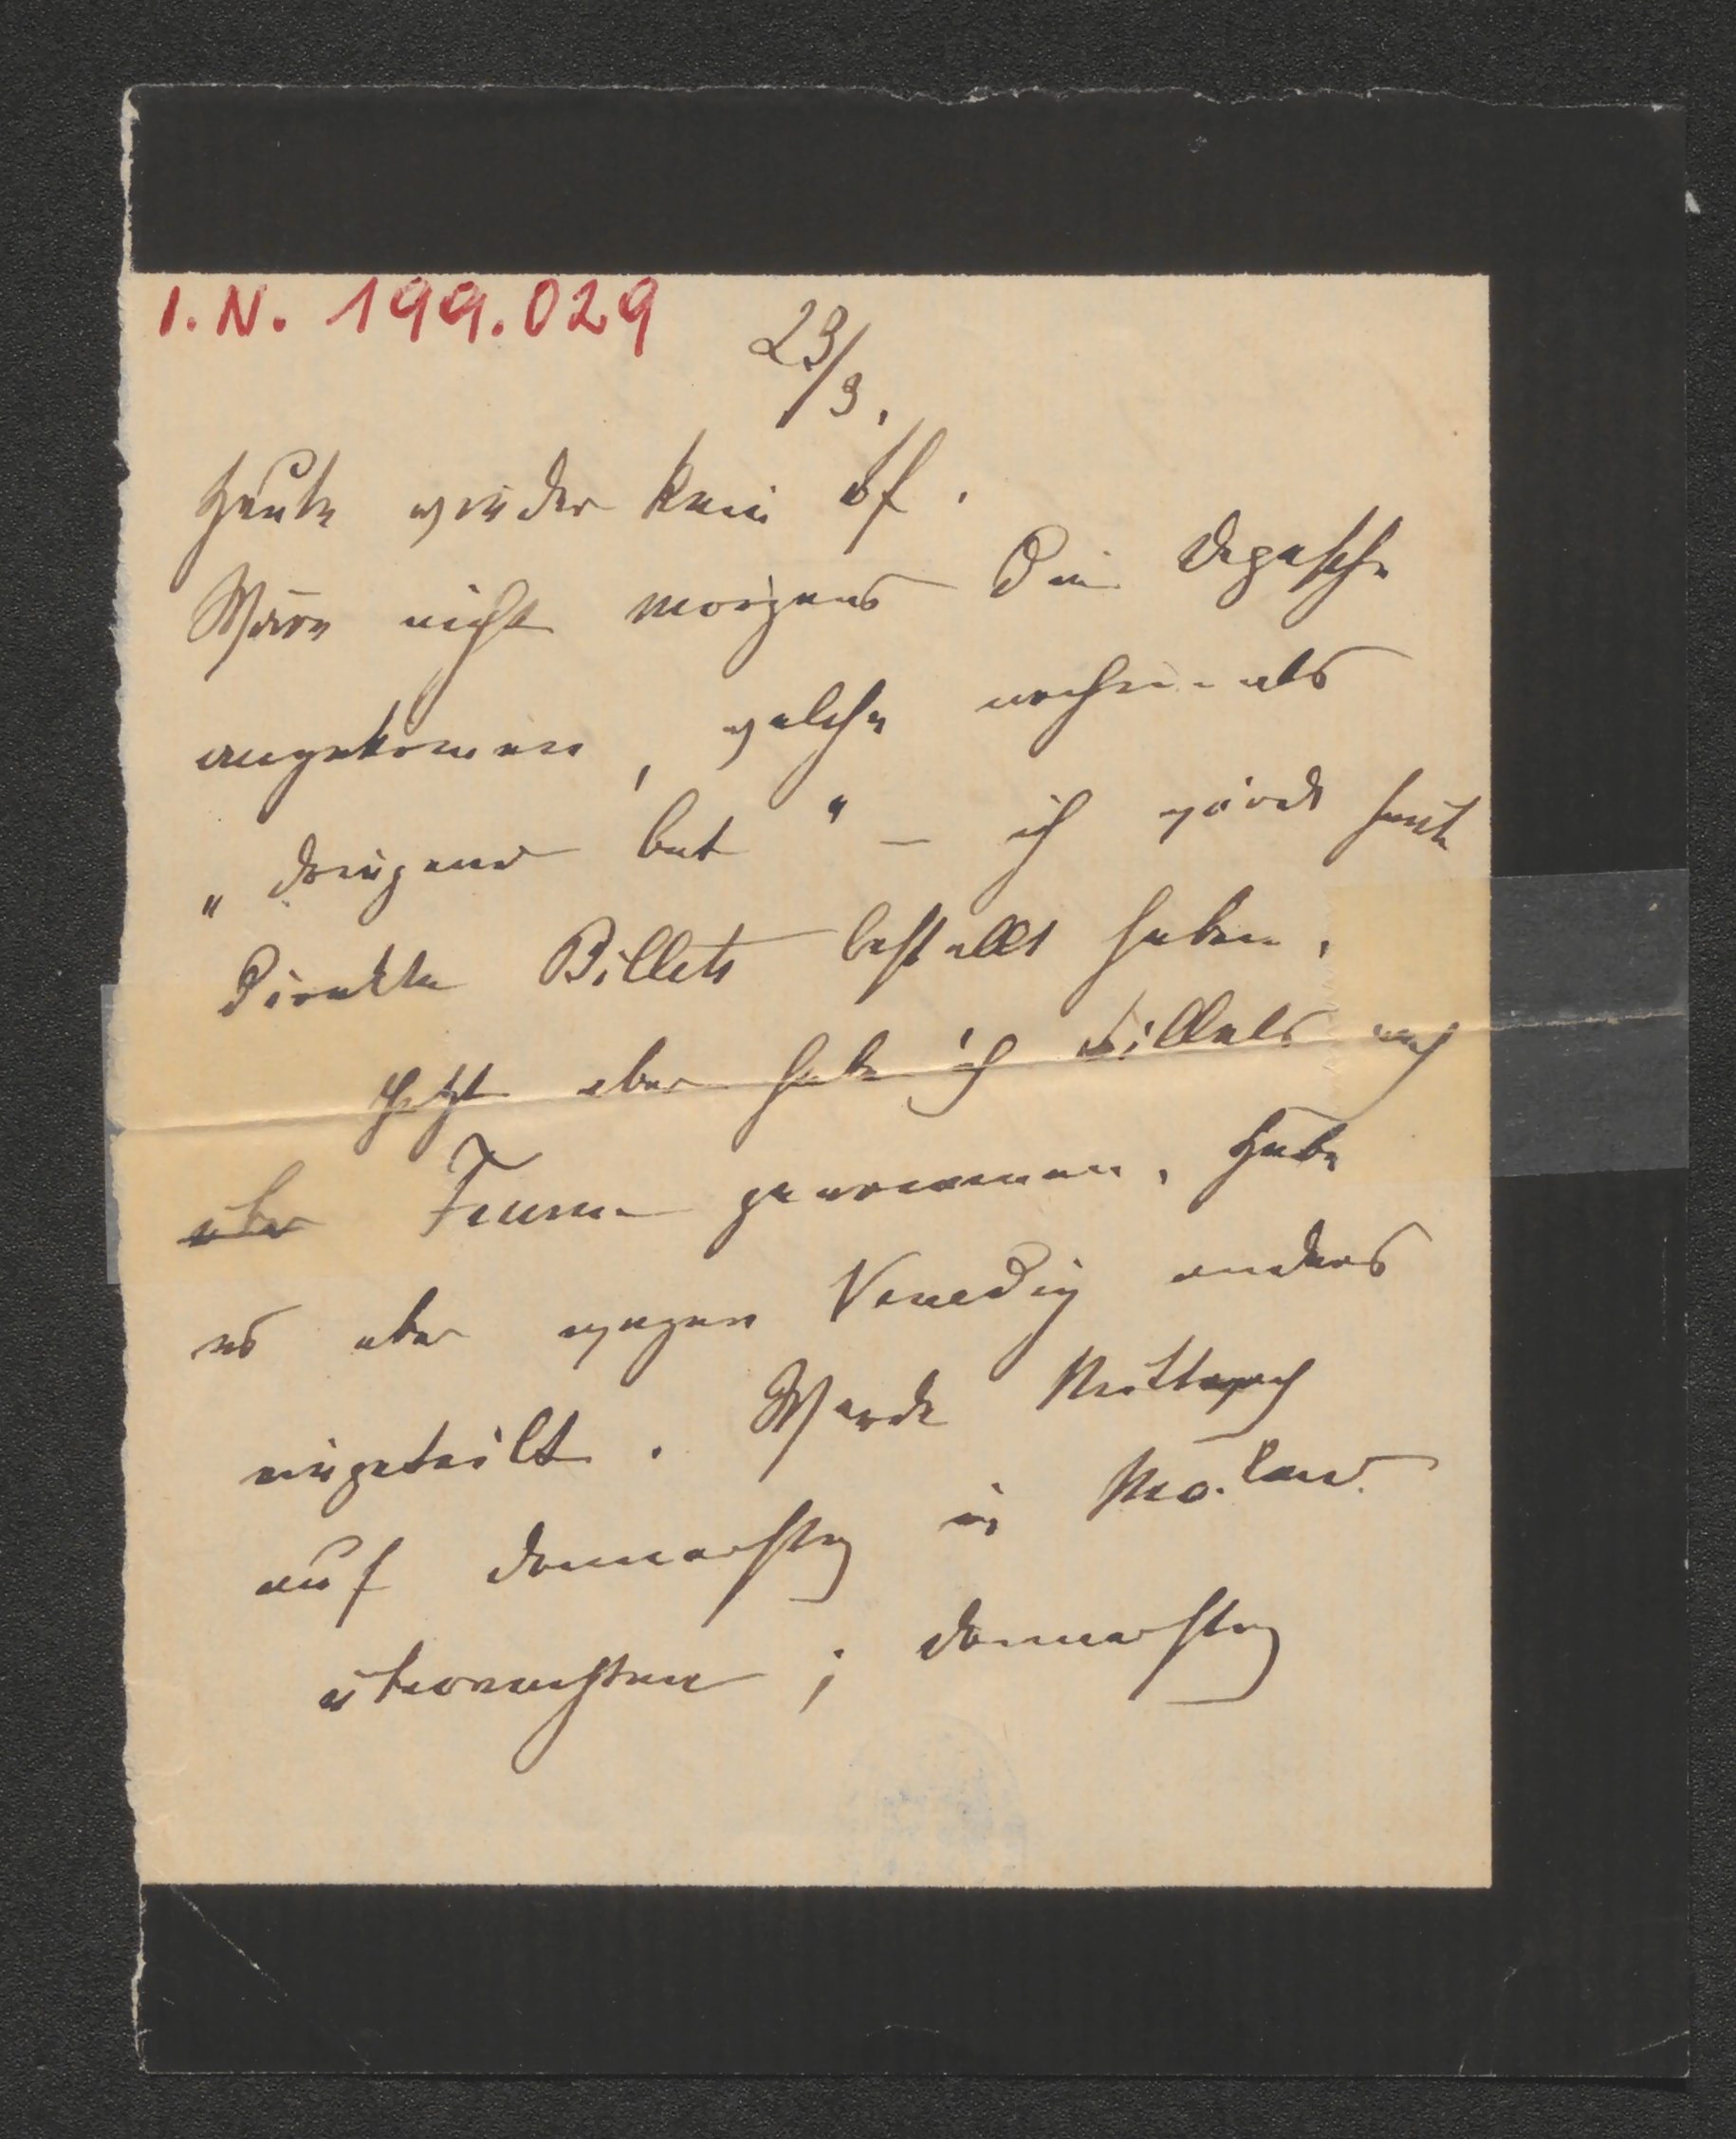 I.N. 199.029
23/3.
Heute wieder kein Bf.
Wäre nicht morgens Dein Depesche
angekommen, welche nochmals
„dringend bat“ – ich würde heute
Direkte Billets bestellt haben.
Jetzt aber habe ich Billets nach
über Fiume genommen. Habe
es aber wegen Venedig anders
eingeteilt. Werde Mittwoch
auf Donnerstag in Mailand
übernachten; Donnerstag